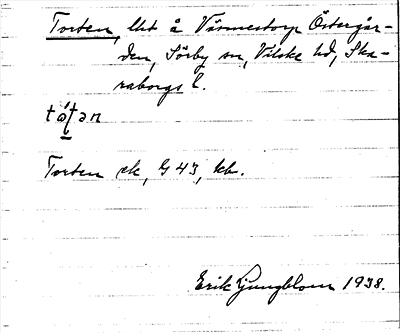 Torten, lht å Värmestorp Östergår-
den, Sörby sn, Vilske hd, Ska-
raborgs l.
tátən
Torten ek, G 43, kb.
Erik Ljungblom 1938.